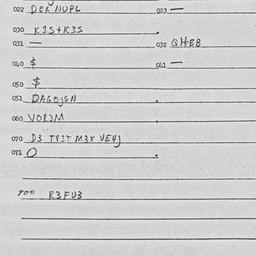 022 DER NUPL 023 —
030 K1S+K3S
031 — 032 QHEB
040 $ 041 —
050 $
051 DAGEJGN
060 VOR3M
070 D3 TP2T M3K VE4J
071 O
900 R3FU3